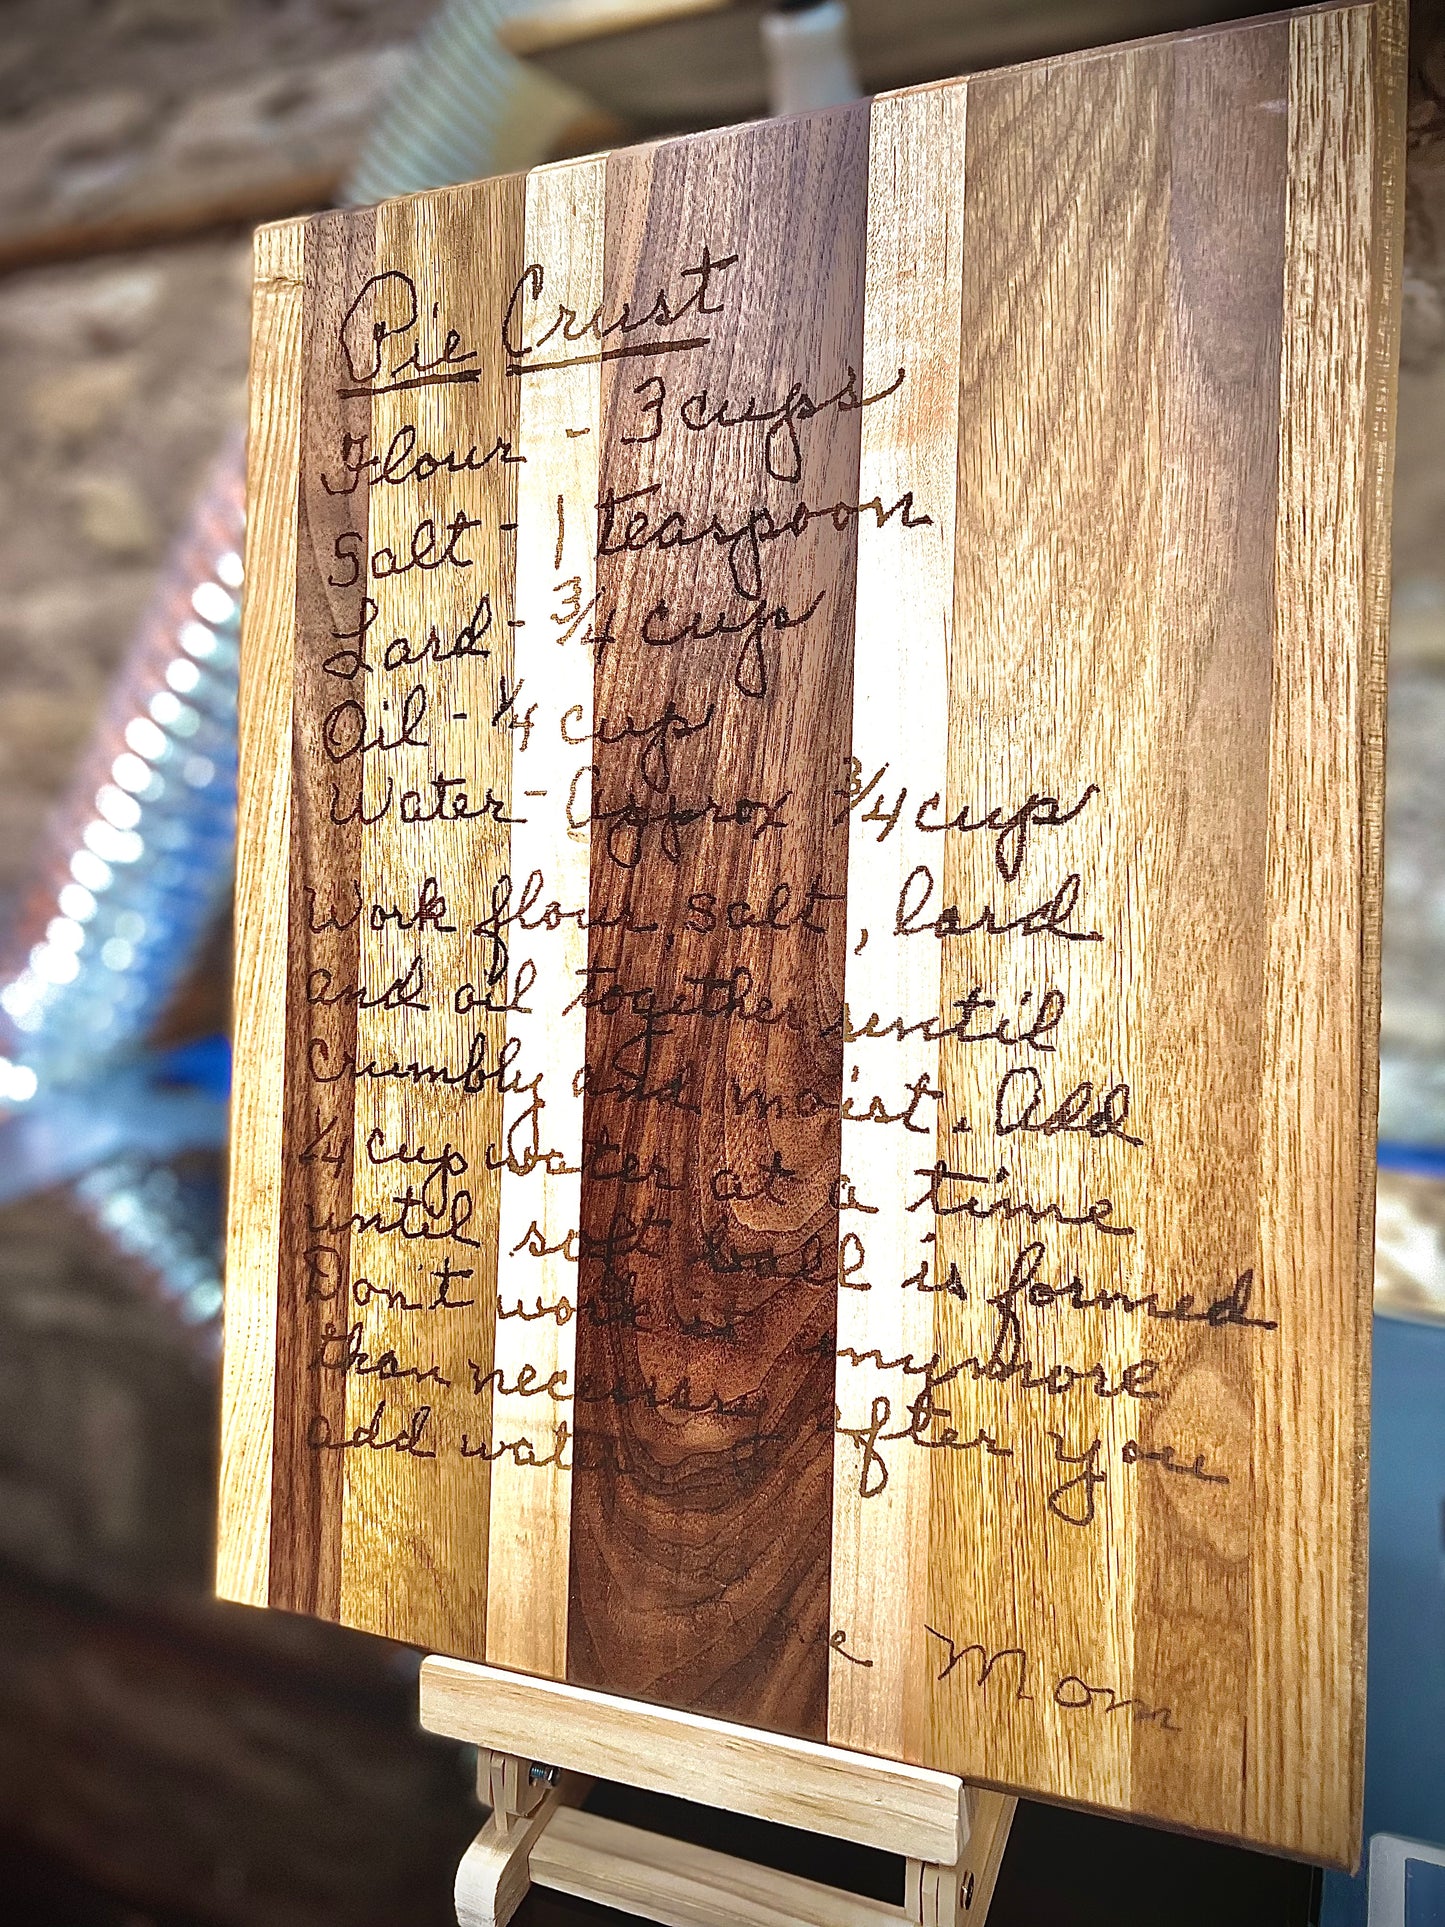 Pie Crust
Flour - 3 cups
Salt - 1 teaspoon
Lard - 3/4 cup
Oil - 1/4 cup
Water - Approx 3/4 cup
Work flour, salt, lard
and oil together until
crumbly and moist. Add
1/4 cup water at a time
until soft ball is formed
Don't work it anymore
than necessary after you
add water
Mom